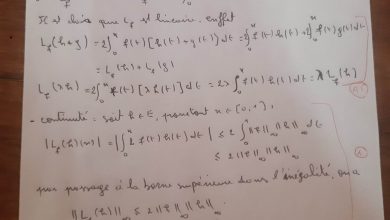 Il est clair que L_f est linéaire, en effet
L_f(h+g) = 2∫_0^x f(t)[h(t)+g(t)]dt = 2∫_0^x f(t)h(t)+2∫_0^x f(t)g(t)dt
= L_f(h)+L_f(g)
L_f(λh) = 2∫_0^x f(t)[λh(t)]dt = 2λ∫_0^x f(t)h(t)dt = λL_f(h)
- continuité : soit h∈E, pour tout x∈[0,1],
|L_f(h)(x)| = |∫_0^x 2 f(t)h(t)dt| ≤ 2∫_0^x ‖f‖_∞ ‖h‖_∞ dt
≤ 2‖f‖_∞ ‖h‖_∞
par passage à la borne supérieure dans l'inégalité, on a
‖L_f(h)‖_∞ ≤ 2‖f‖_∞ ‖h‖_∞